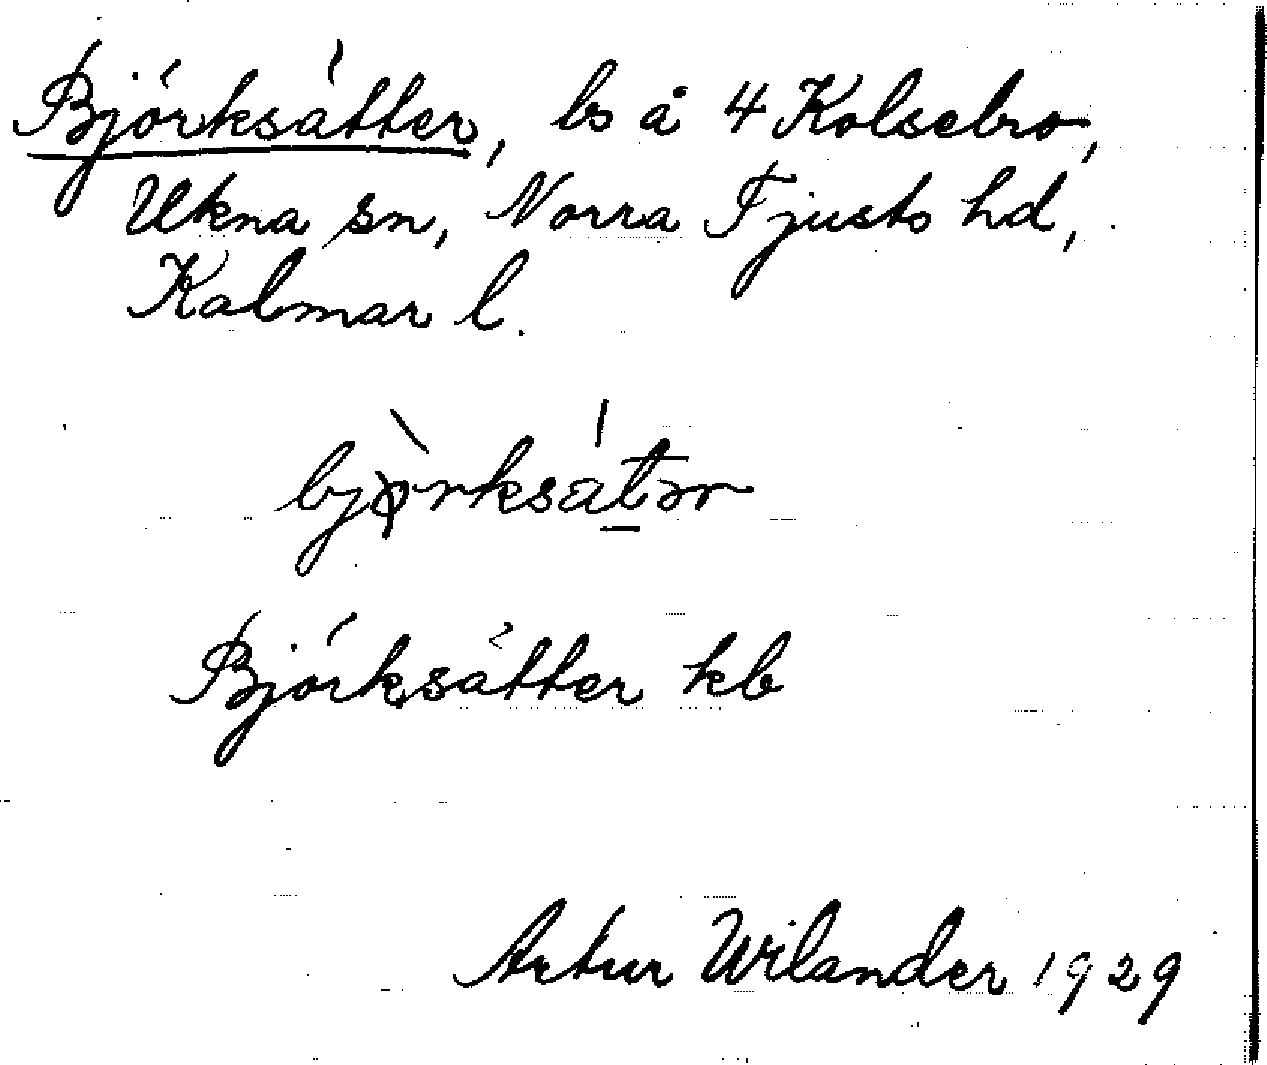 Björksätter, ls å 4 Kolsebro,
Ukna sn, Norra Tjusts hd,
Kalmar l.
bjò̢rksátər
Björksätter kb
Artur Wilander 1929